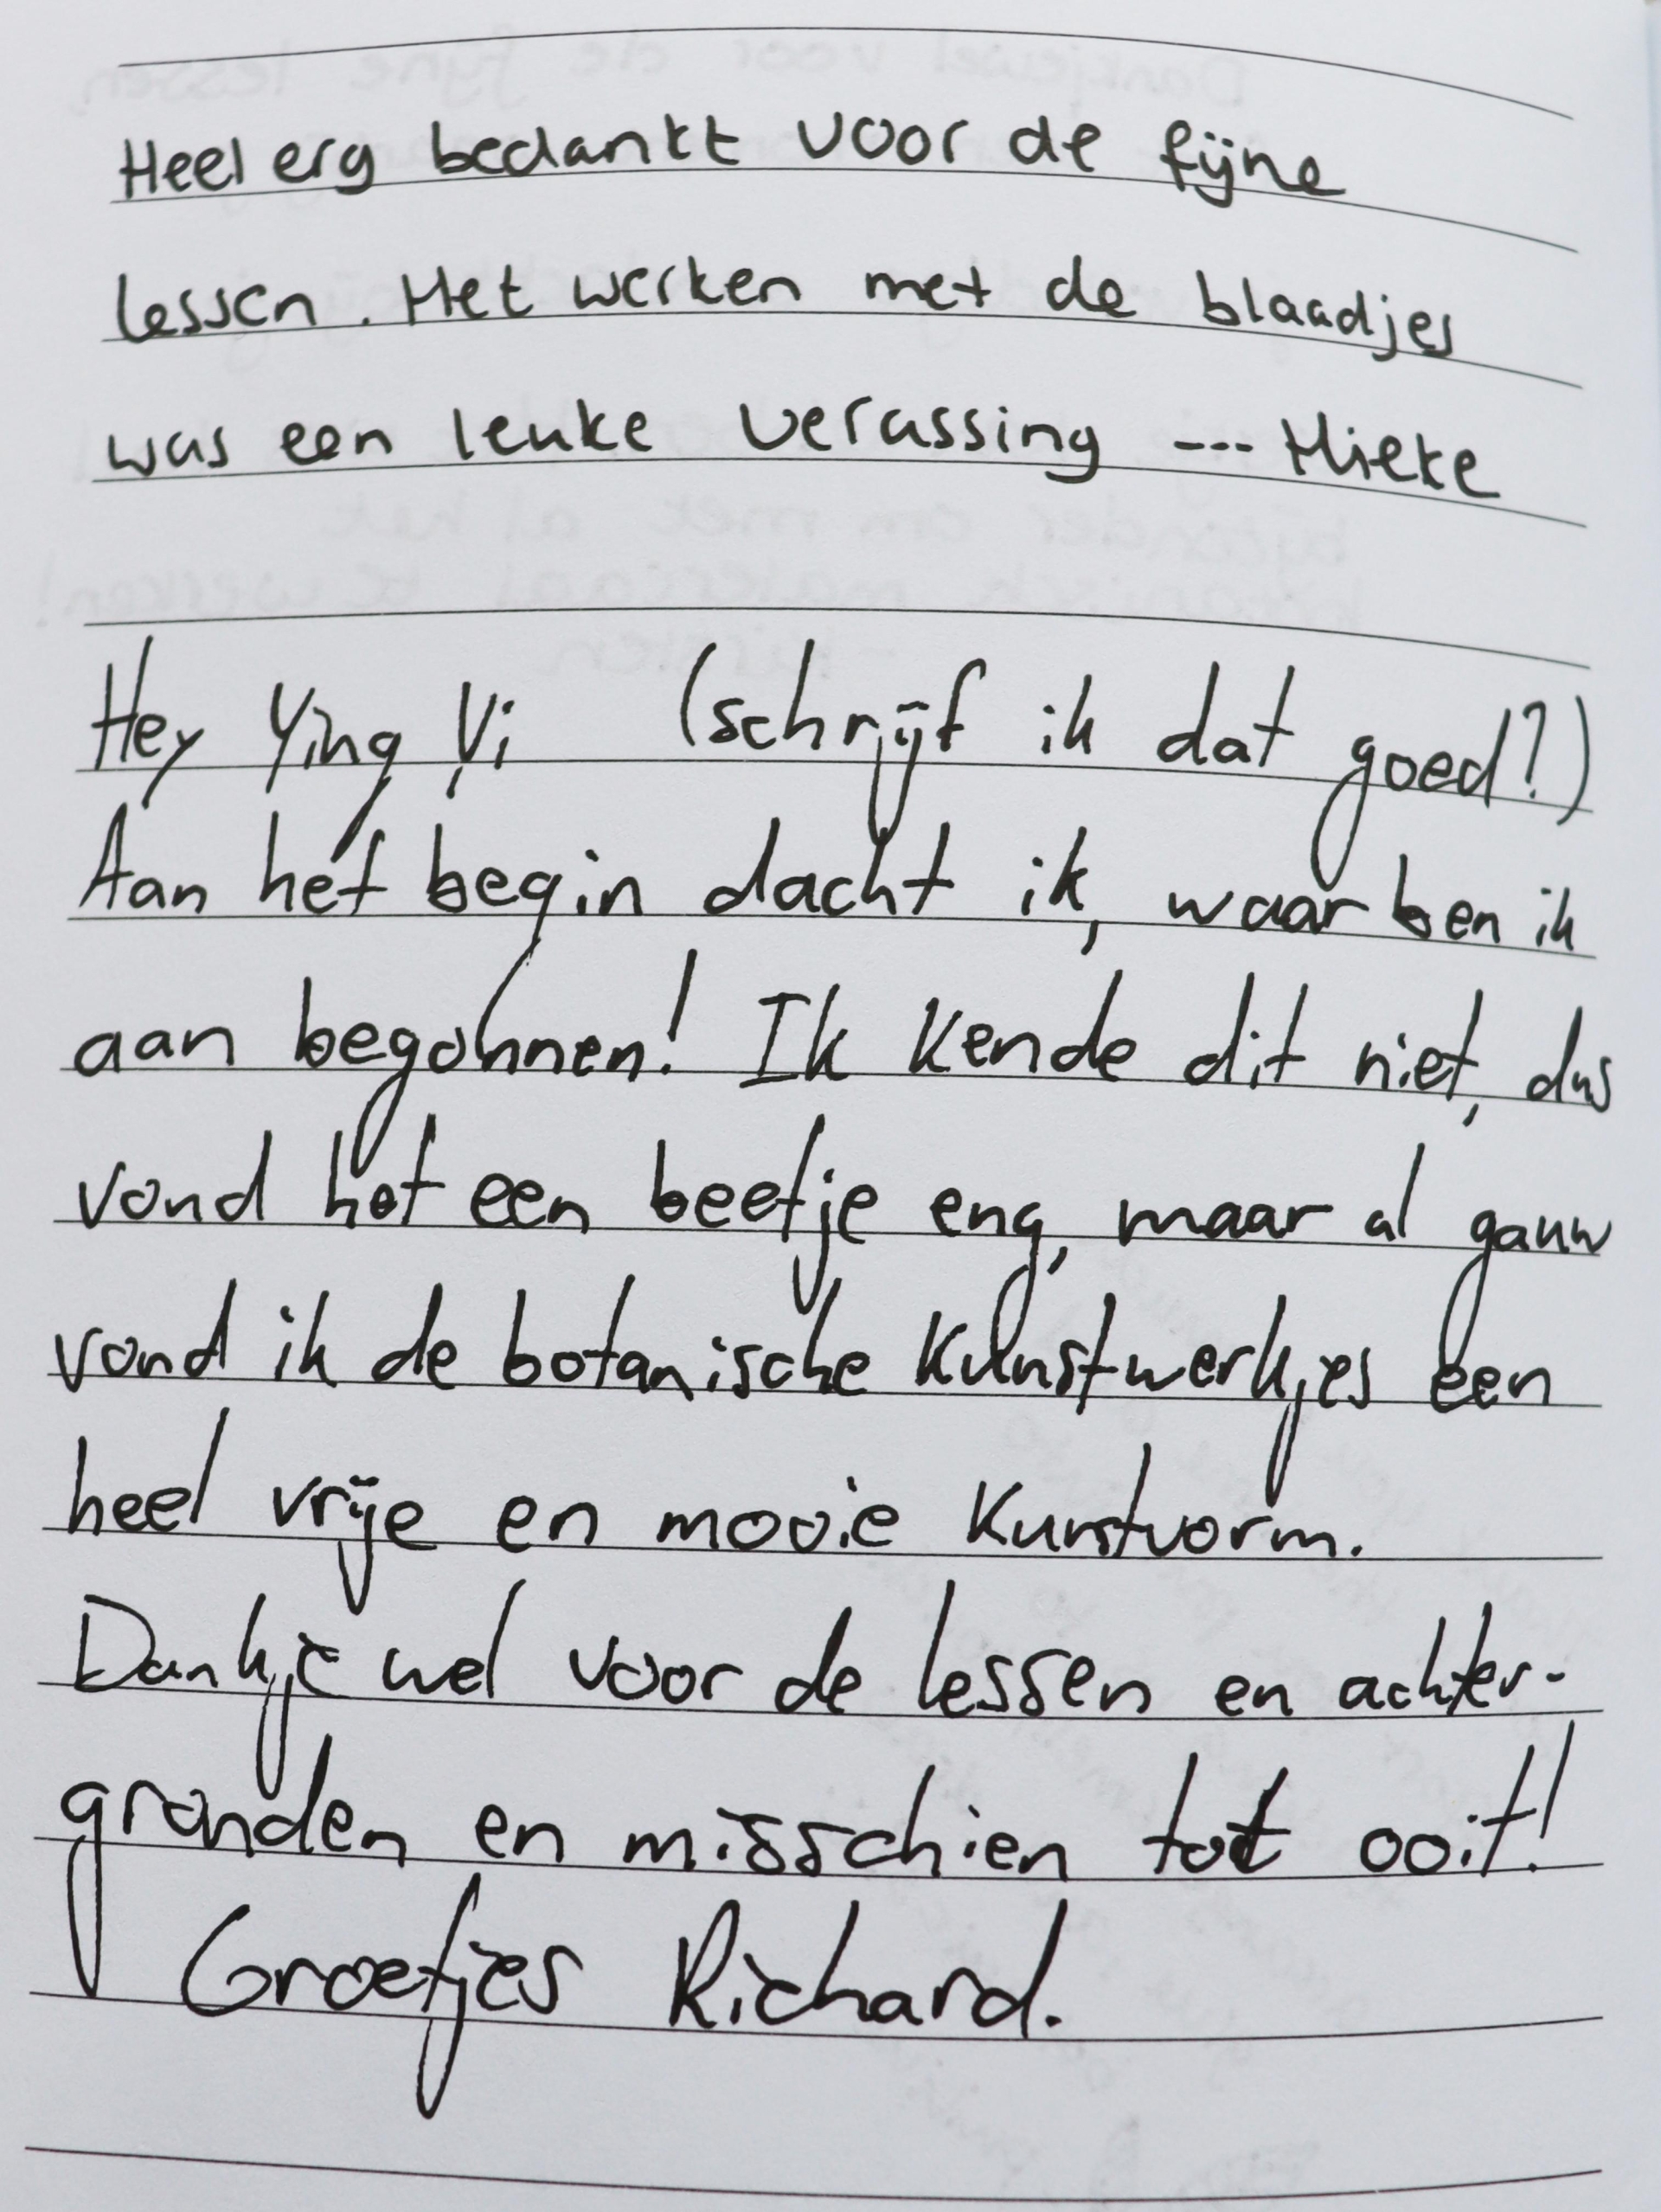 Heel erg bedankt voor de fijne
lessen. Het werken met de blaadjes
was een leuke verassing --- Hieke
Hey Ying Yi (schrijf ik dat goed?)
Aan het begin dacht ik, waar ben ik
aan begonnen! Ik kende dit niet, dus
vond het een beetje eng, maar al gauw
vond ik de botanische kunstwerkjes een
heel vrije en mooie kunstvorm.
Dankje wel voor de lessen en achter-
gronden en misschien tot ooit!
Groetjes Richard.